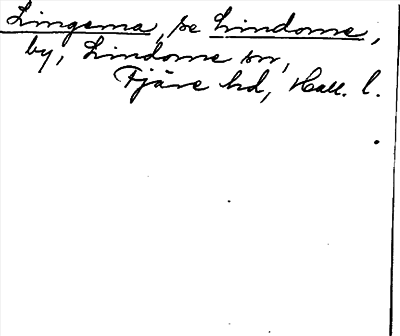 Lingema, se Lindome,
by, Lindome sn,
Fjäre hd, Hall. l.